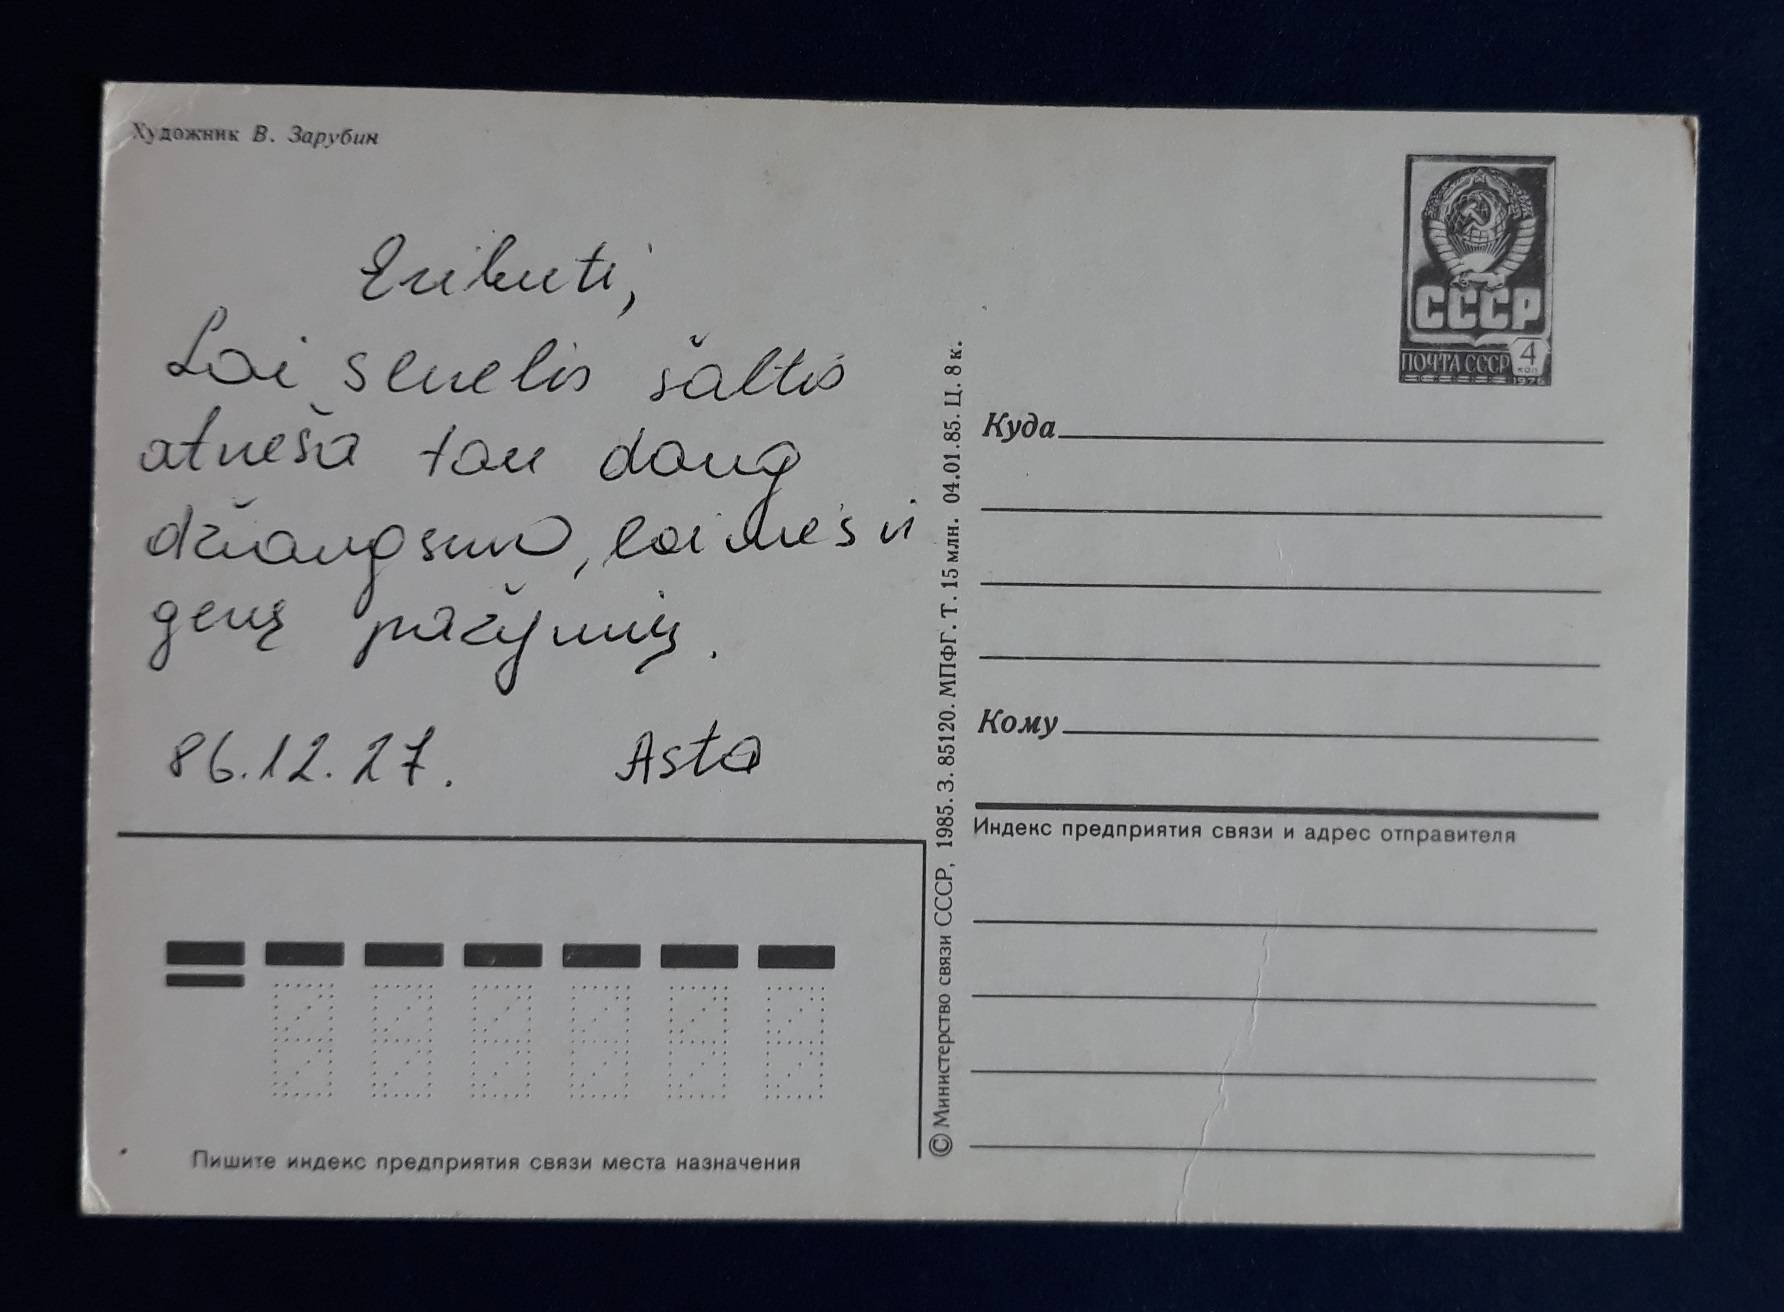 Художник В. Зарубин
Erikuti,
Lai senelis šaltis
atneša tau daug
džiaugsmo, laimės ir
gerų pažymių.
86.12.27. Asta
Пишите индекс предприятия связи места назначения
© Министерство связи СССР, 1985. З. 85120. МПФГ. Т. 15 млн. 04.01.85. Ц. 8 к.
СССР
ПОЧТА СССР 4 КОП
1976
Куда
Кому
Индекс предприятия связи и адрес отправителя